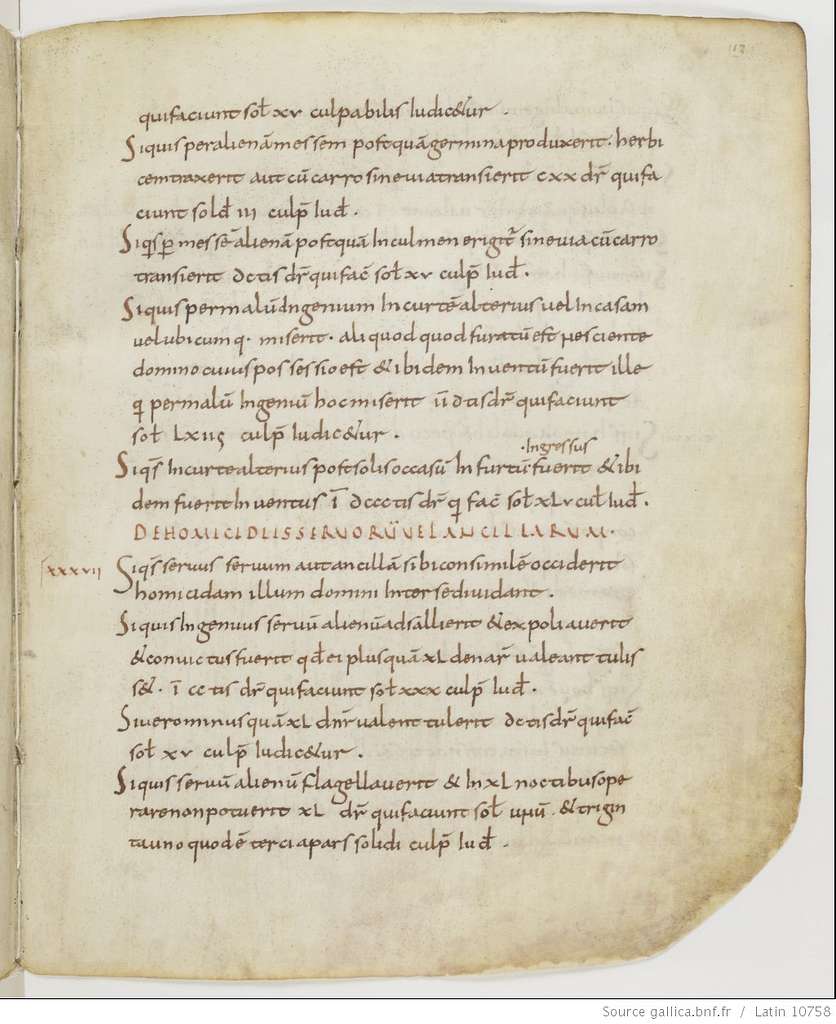 112
quifaciunt sol xv culpabilis Iudic&ur .
Siquis peralienā messem postquā germina produxerit. herbi
cem traxerit aut cū carro sine via transierit cxx dr̄ quifa
ciunt sold III culp̄ Iud̄ .
Siq̄s p̱ messē alienā postquā In culmen erigit̄ sine via cū carro
transierit dctis dr̄ quifac̄ sol xv culp̄ Iud̄ .
Siquis per malū Ingenium In curtē alterius vel In casam
vel ubicumq. miserit . aliquod quod furatū est nesciente
domino cuius possessio est & ibidem Inventū fuerit ille
qi per malū Ingeniū hoc miserit
quifaciunt
sol LXIIS culp̄ Iudic&ur .
.Ingressus
Siq̄s In curte alterius post solis occasū In furtū fuerit & ibi
dem fuerit Inventus ī dccctis dr̄ qi fac̄ sol xLv cul Iud̄ .
DE HOMICIDIIS SERVORŪ VEL ANCILLARUM .
xxxvii
Siq̄s servus servum aut ancillā sibi consimilē occiderit
homicidam illum domini Inter se dividant .
Siquis Ingenuus servū alienū adsallierit & expoliaverit
& convictus fuerit qd̄ ei plus quā XL denar̄ valeant tulis
s&. ī cctis dr̄ quifaciunt sol xxx culp̄ Iud̄ .
Si vero minus quā XL dnr̄ valent tulerit dctis dr̄ quifac̄
sol xv culp̄ Iudic&ur .
Siquis servū alienū flagellaverit & In XL noctibus ope
rare non potuerit XL dr̄ quifaciunt sol unū . & trigin
ta uno quod ē tercia pars solidi culp̄ Iud̄ .
Source gallica.bnf.fr / Latin 10758